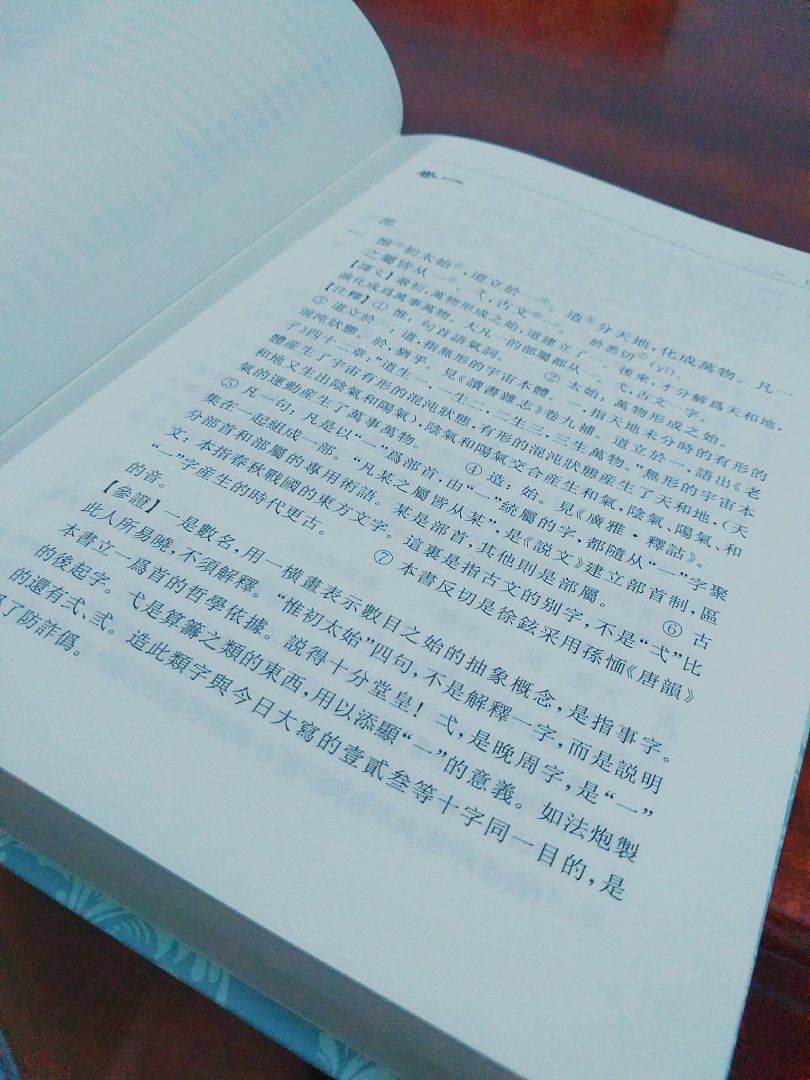 卷一
一部
一 惟①初太始②，道立於一③。造④分天地，化成萬物。凡一
之屬皆从一⑤。弌，古文⑥一。 於悉切⑦(yī)。
【譯文】最初，萬物形成之始，道建立了一。後來，才分解爲天和地，
演化成爲萬事萬物。大凡一的部屬都从一。弌，古文一字。
【注釋】① 惟：句首語氣詞。 ② 太始：萬物形成之始。
③ 道立於一：道：指無形的宇宙本體。一，指天地未分時的有形的
混沌狀態。於，猶乎。見《讀書雜志》卷九補。道立於一，語出《老
子》四十二章：“道生一，一生二，二生三，三生萬物。”無形的宇宙本
體産生了宇宙有形的混沌狀態，有形的混沌狀態産生了天和地，(天
和地又生出陰氣和陽氣)，陰氣和陽氣交合産生和氣，陰氣、陽氣、和
氣的運動産生了萬事萬物。 ④ 造：始。見《廣雅·釋詁》。
⑤ 凡一句：凡是以“一”爲部首，由“一”統屬的字，都隨从“一”字聚
集在一起組成一部。“凡某之屬皆从某”，是《説文》建立部首制，區
分部首和部屬的專用術語。某是部首，其他則是部屬。 ⑥ 古
文：本指春秋戰國的東方文字。這裏是指古文的别字，不是“弌”比
“一”字産生的時代更古。 ⑦ 本書反切是徐鉉采用孫愐《唐韻》
的音。
【參證】一是數名，用一横畫表示數目之始的抽象概念，是指事字。
此人所易曉，不須解釋。“惟初太始”四句，不是解釋一字，而是説明
本書立一爲首的哲學依據。説得十分堂皇！弌，是晚周字，是“一”
的後起字。弋是算籌之類的東西，用以添顯“一”的意義。如法炮製
的還有弍、弎。造此類字與今日大寫的壹貳叁等十字同一目的，是
了防詐僞。